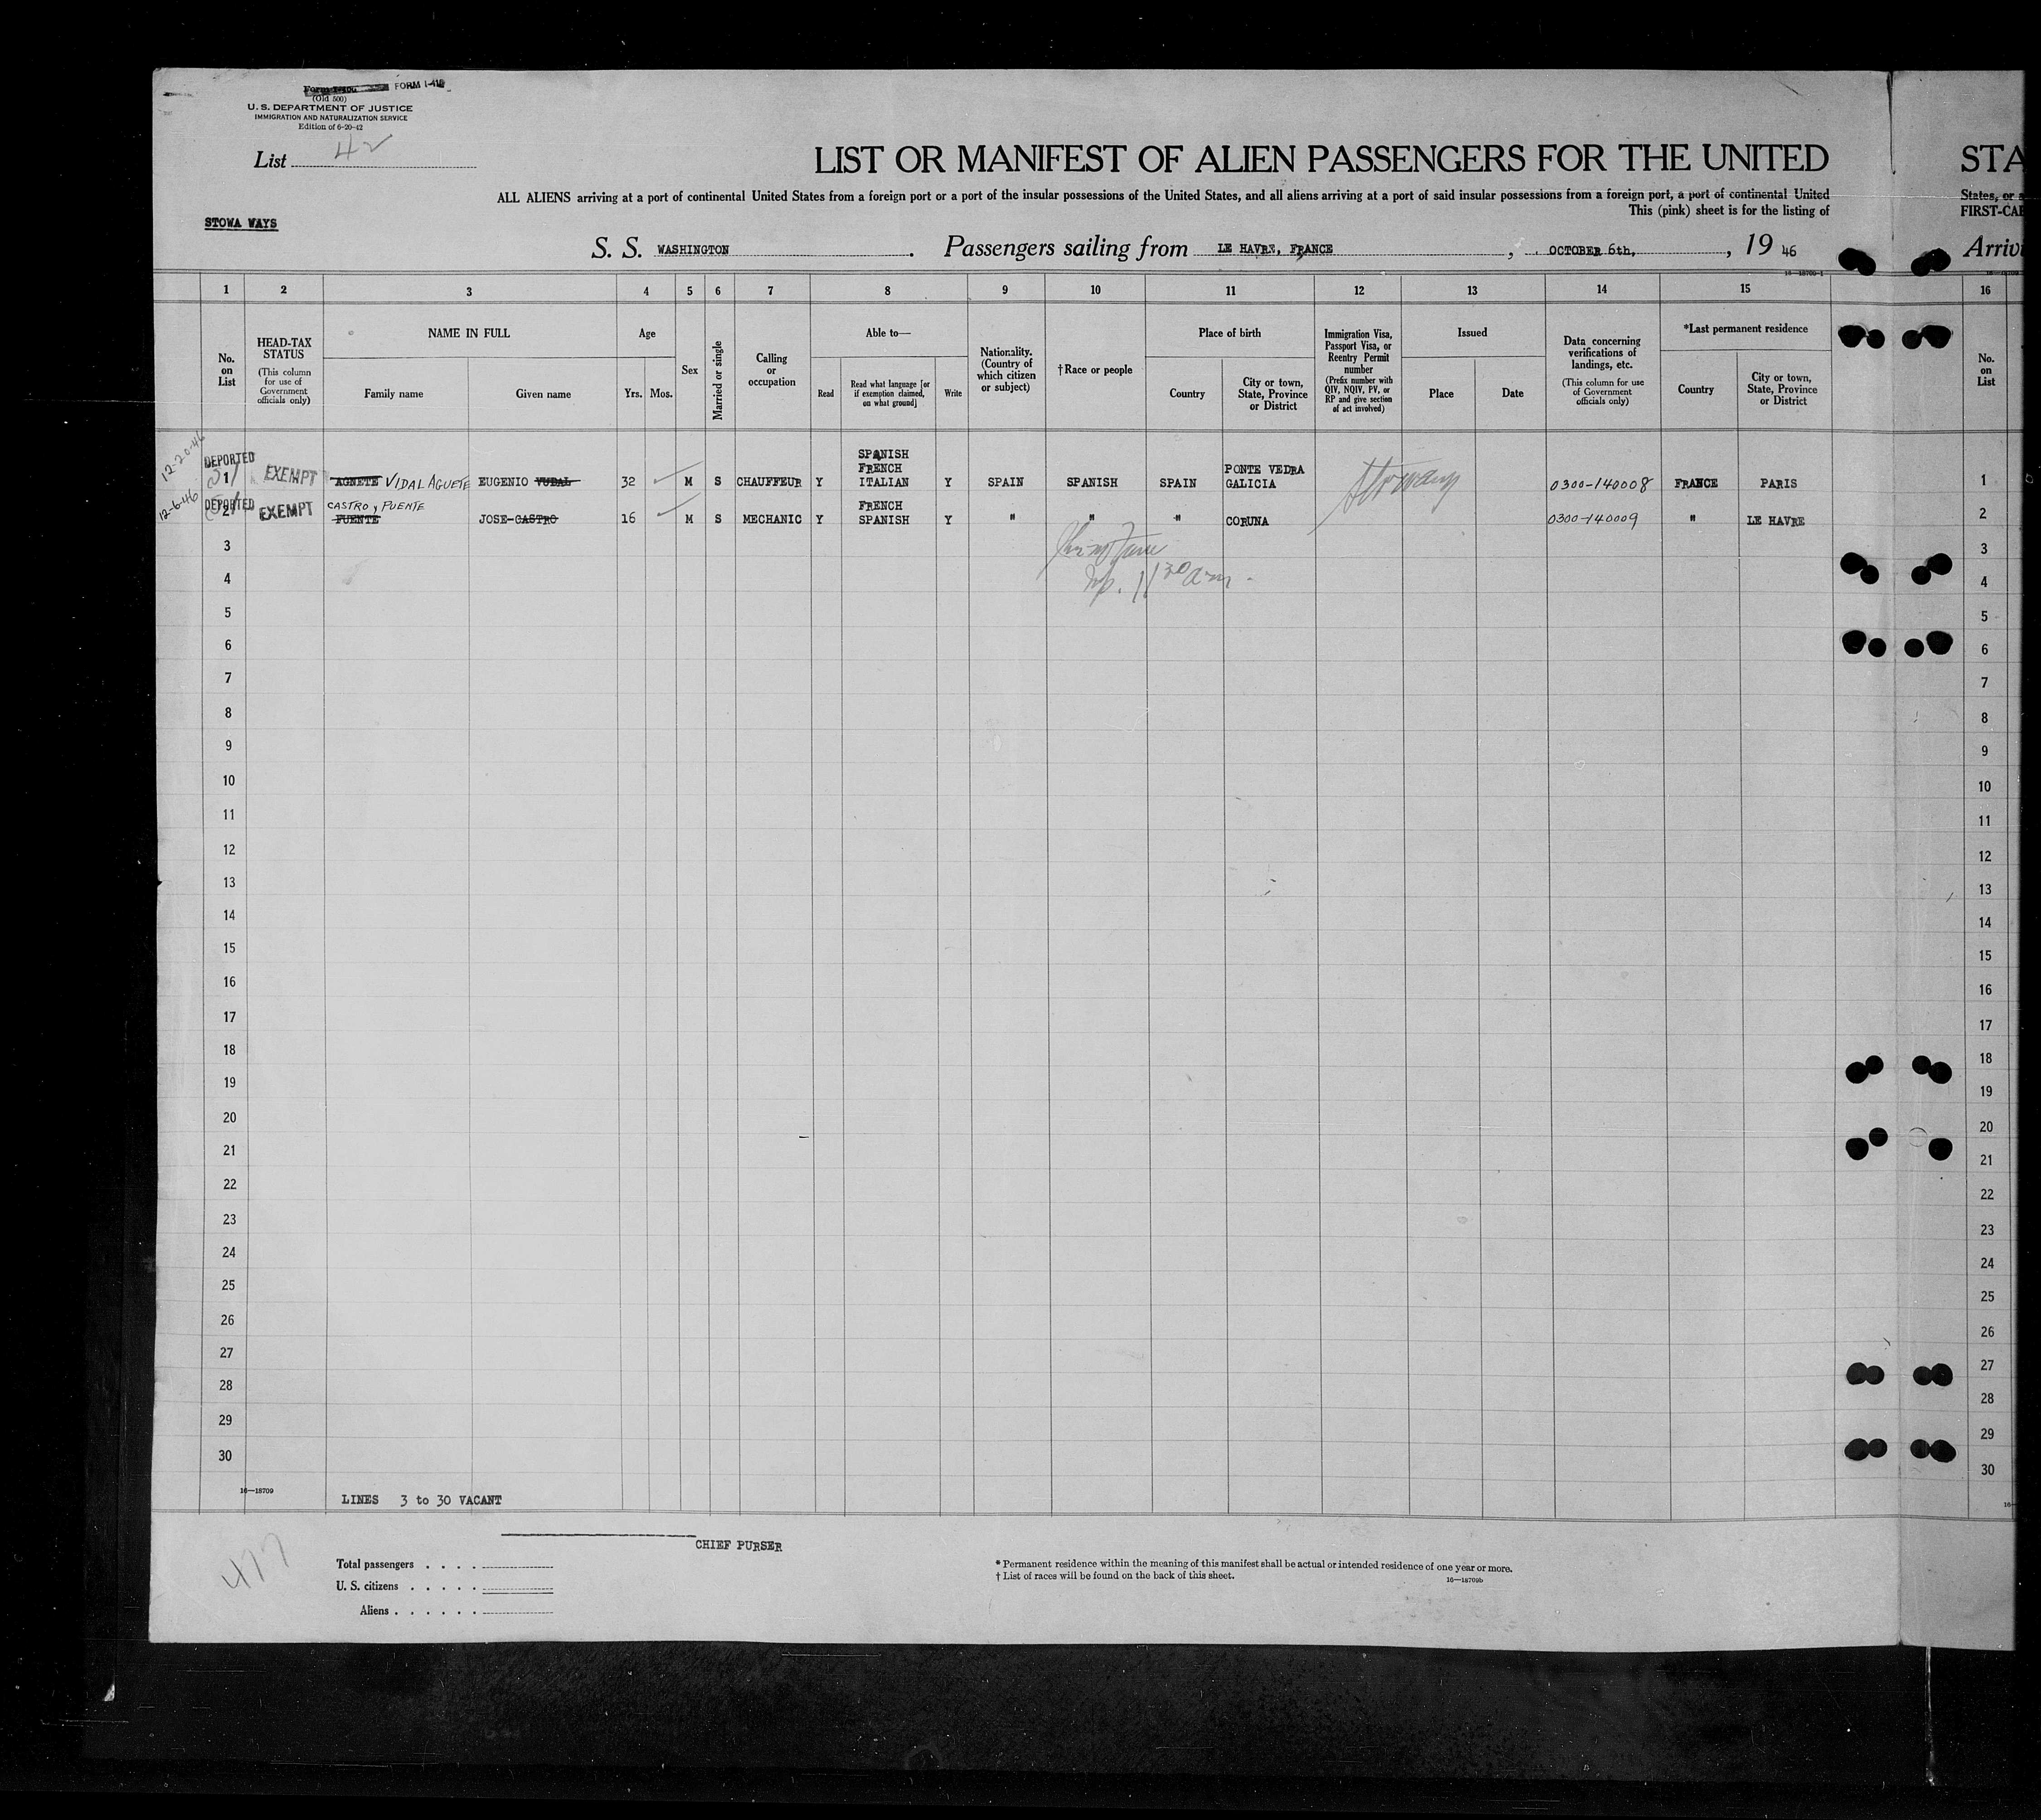 FORM I-418
(Old 500)
U. S. DEPARTMENT OF JUSTICE
IMMIGRATION AND NATURALIZATION SERVICE
Edition of 6-20-42
List 42
LIST OR MANIFEST OF ALIEN PASSENGERS FOR THE UNITED STA
ALL ALIENS arriving at a port of continental United States from a foreign port or a port of the insular possessions of the United States, and all aliens arriving at a port of said insular possessions from a foreign port, a port of continental United States, or a
This (pink) sheet is for the listing of FIRST-CAB
STOWA WAYS
S. S. WASHINGTON. Passengers sailing from LE HAVRE, FRANCE, OCTOBER 6th, , 19 46 Arriv
1 2 3 4 5 6 7 8 9 10 11 12 13 14 15 16
No. on List
HEAD-TAX STATUS
(This column for use of Government officials only)
NAME IN FULL
Family name Given name
Age
Yrs. Mos.
Sex
Married or single
Calling or occupation
Able to—
Read
Read what language [or if exemption claimed, on what ground]
Write
Nationality. (Country of which citizen or subject)
†Race or people
Place of birth
Country
City or town, State, Province or District
Immigration Visa, Passport Visa, or Reentry Permit number
(Prefix number with QIV, NQIV, PV, or RP and give section of act involved)
Issued
Place Date
Data concerning verifications of landings, etc.
(This column for use of Government officials only)
*Last permanent residence
Country
City or town, State, Province or District
No. on List
12-20-46 DEPORTED
SPANISH
FRENCH PONTE VEDRA
1 EXEMPT AGNETE VIDAL AGUETE EUGENIO VUDAL 32 M S CHAUFFEUR Y ITALIAN Y SPAIN SPANISH SPAIN GALICIA 0300-140008 FRANCE PARIS 1
12-6-46 DEPORTED CASTRO y PUENTE FRENCH
2 EXEMPT FUENTE JOSE-CASTRO 16 M S MECHANIC Y SPANISH Y " " " CORUNA 0300-140009 " LE HAVRE 2
3 3
4 1130 am. 4
5 5
6 6
7 7
8 8
9 9
10 10
11 11
12 12
13 13
14 14
15 15
16 16
17 17
18 18
19 19
20 20
21 21
22 22
23 23
24 24
25 25
26 26
27 27
28 28
29 29
30 30
16—18709
LINES 3 to 30 VACANT
CHIEF PURSER
477
Total passengers . . . .
U. S. citizens . . . . .
Aliens . . . . . .
* Permanent residence within the meaning of this manifest shall be actual or intended residence of one year or more.
† List of races will be found on the back of this sheet.
16—18709b